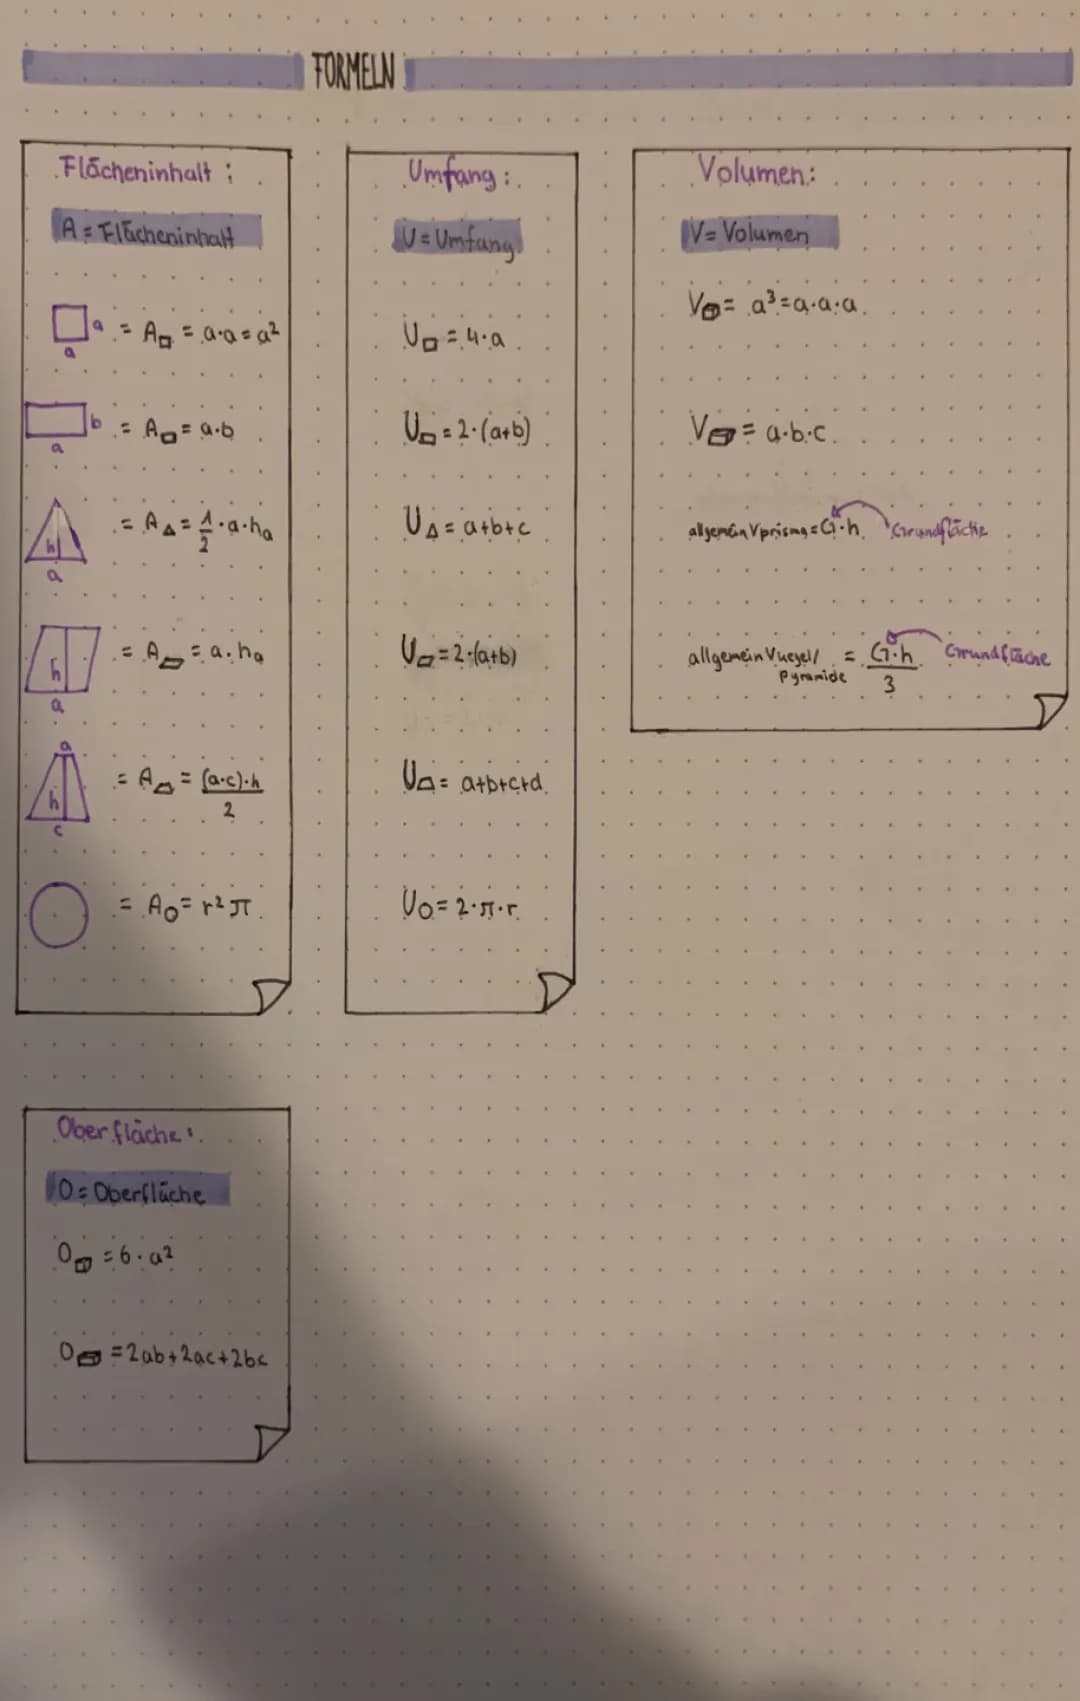 FORMELN
Flächeninhalt:
A = Flächeninhalt
a = A□ = a·a = a²
a
b = A▭ = a·b
a
h = A△ = 1/2 · a · hₐ
a
h = A▱ = a · hₐ
a
a
h = A⏢ = (a·c)·h / 2
c
= A○ = r² π
Umfang:
U = Umfang
U□ = 4·a
U▭ = 2·(a+b)
U△ = a+b+c
U▱ = 2·(a+b)
U⏢ = a+b+c+d
U○ = 2·π·r
Volumen:
V = Volumen
V = a³ = a·a·a
V = a·b·c
allgemein Vprisma = G·h Grundfläche
allgemein Vkegel/ = G·h / 3 Grundfläche
Pyramide
Oberfläche:
O = Oberfläche
O = 6·a²
O = 2ab+2ac+2bc